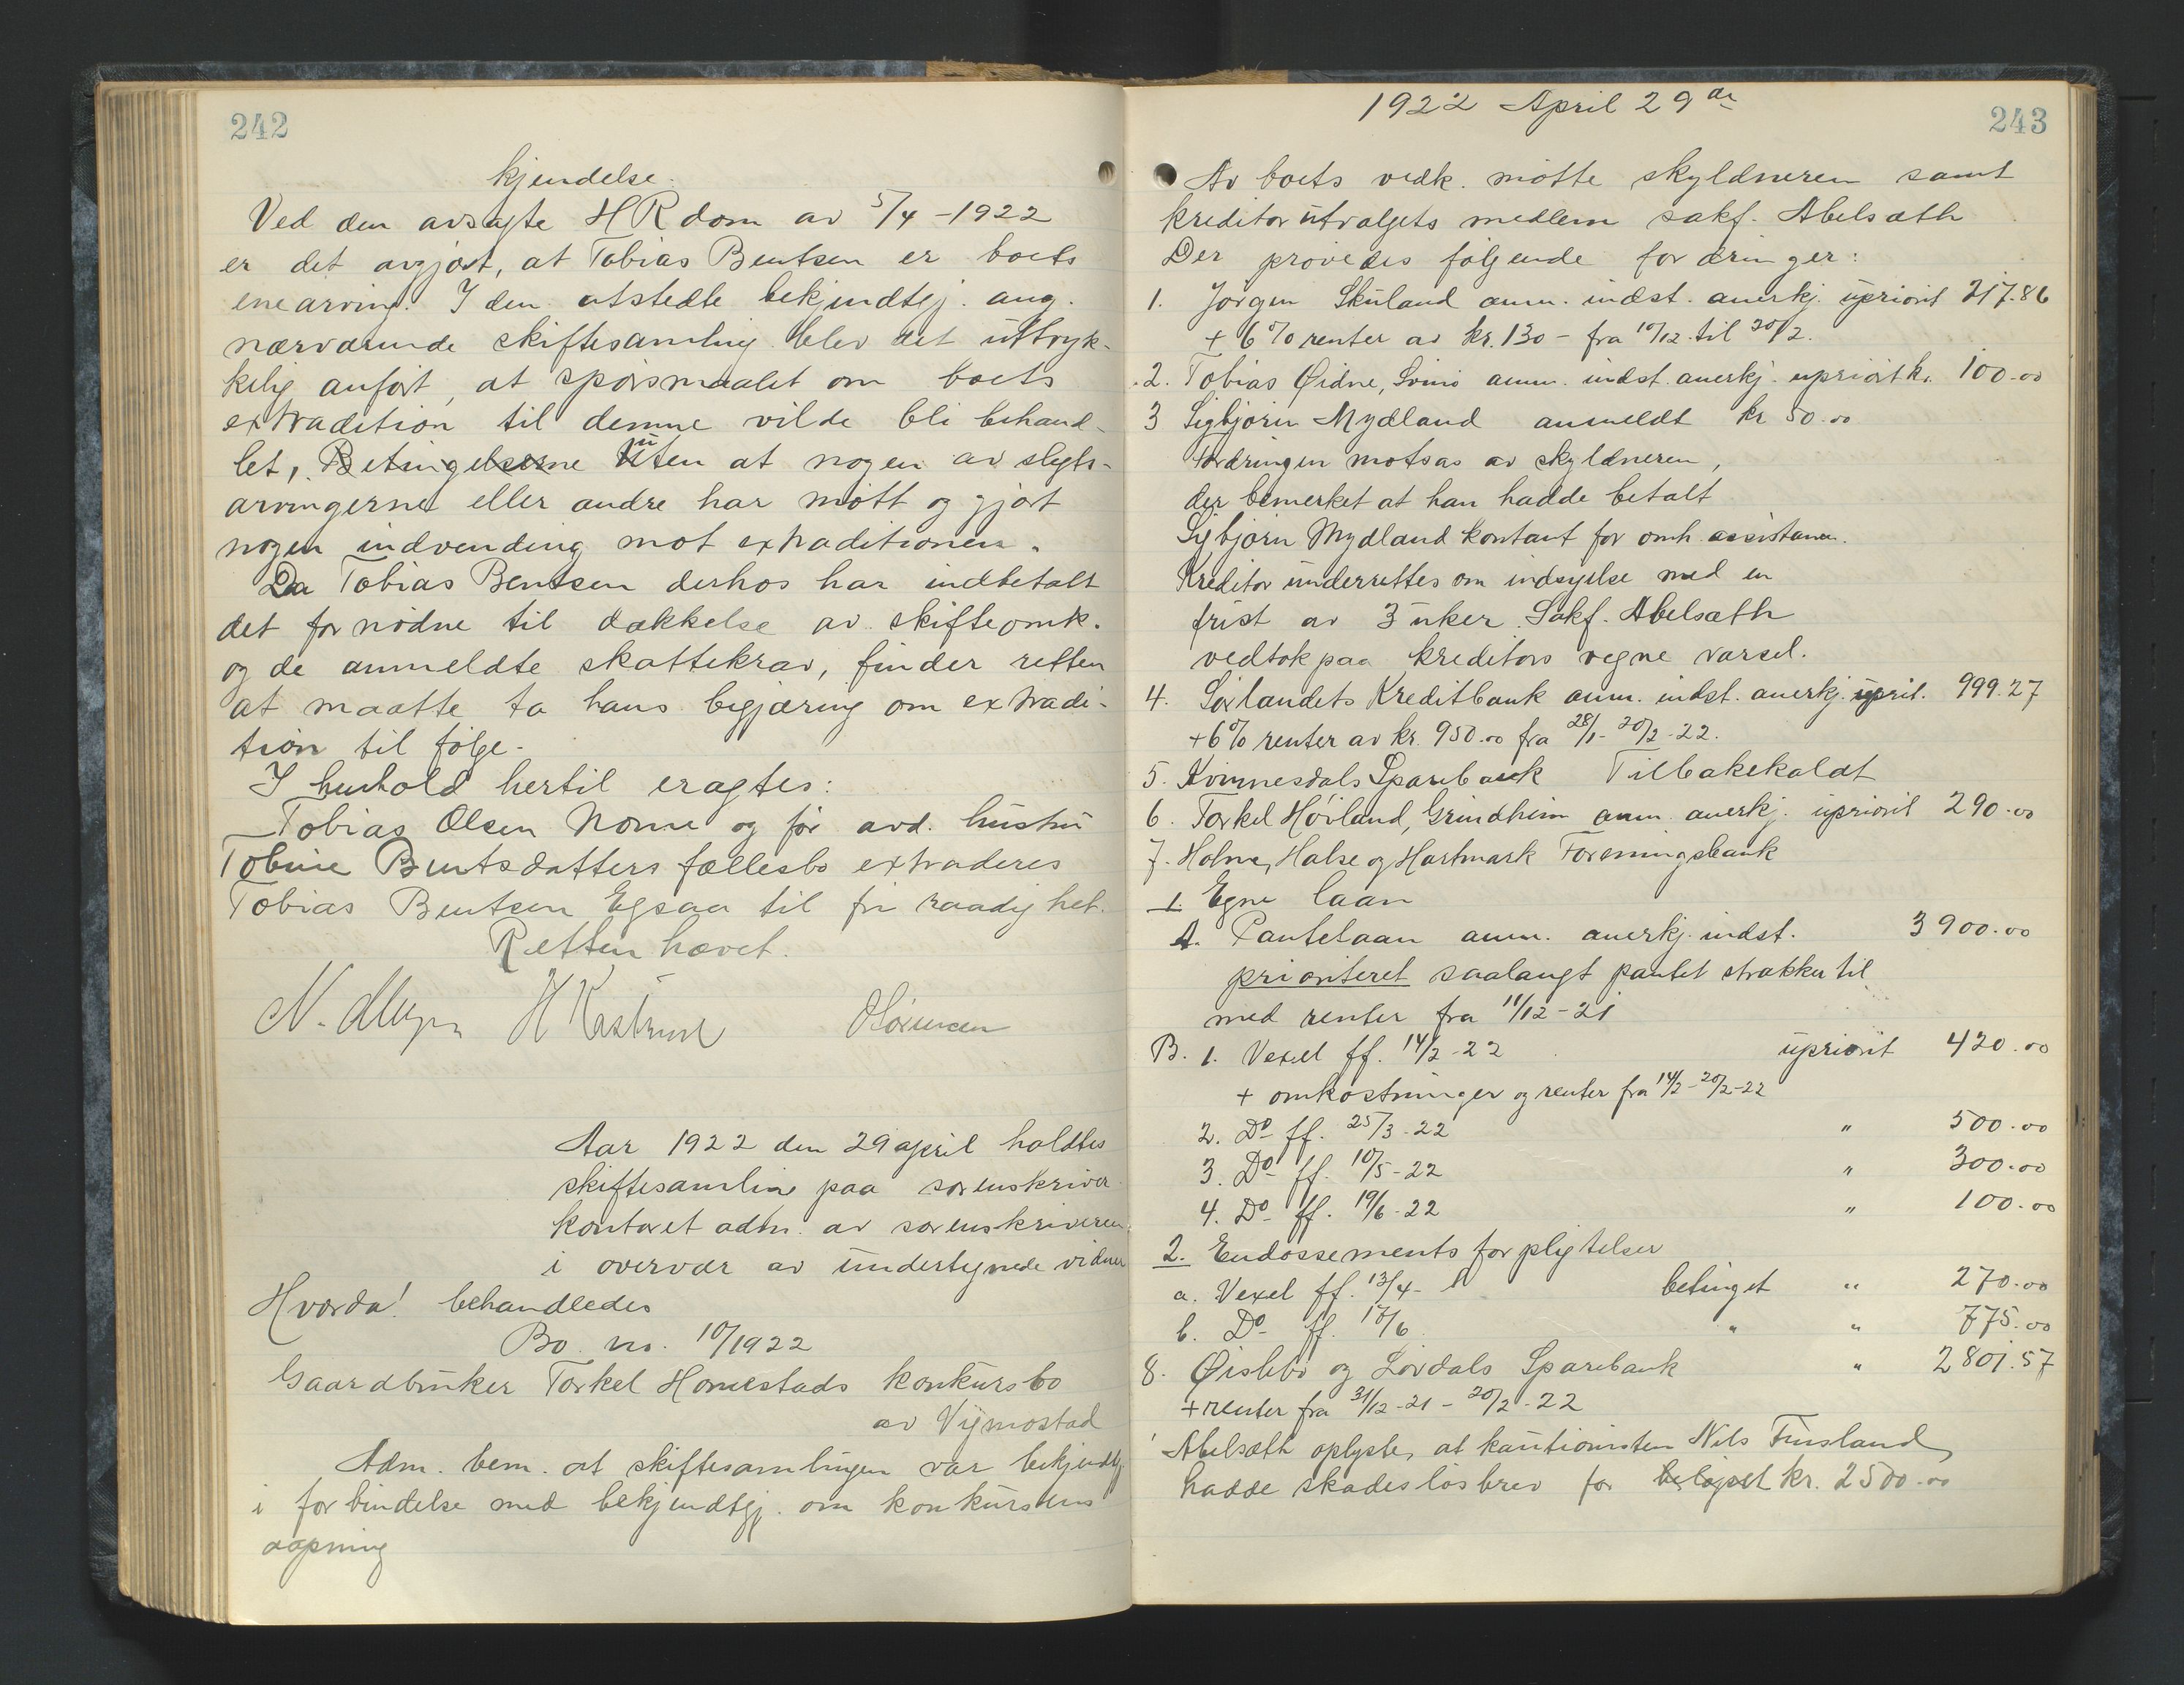 242
kjendelse.
Ved den avsagte H R dom av 5/4 - 1922
er det avgjort, at Tobias Bentsen er boets
enearving. I den utstedte bekjendtgj. ang.
nærværende skiftesamling blev det uttryk-
kelig anført, at spørsmaalet om boets
extradition til denne vilde bli behand-
let, Betingelserne uten at nogen av slegts-
arvingerne eller andre har møtt og gjort
nogen indvending mot extraditionen.
Da Tobias Bentsen derhos har indbetalt
det fornødne til dækkelse av skifteomk.
og de anmeldte skattekrav, finder retten
at maatte ta hans begjæring om extradi-
tion til følge.
I henhold hertil eragtes:
Tobias Olsen Nome og før avd. hustru
Tobine Bentsdatters fællesbo extraderes
Tobias Bentsen Egsaa til fri raadighet.
Retten hævet.
N. H OSørensen
Aar 1922 den 29 april holdtes
skiftesamling paa sorenskriver
kontoret adm. av sorenskriveren
i overvær av undertegnede vidner
Hvorda! behandledes
Bo. no. 10/1922
Gaardbruker Torkel Homestads konkursbo
av Vigmostad
Adm. bem. at skiftesamlingen var bekjendtgj
i forbindelse med bekjendtgj. om konkursens
aapning
1922 April 29de
243
Av boets vedk. møtte skyldneren samt
kreditorutvalgets medlem sakf. Abelsæth
Der prøvedes følgende fordringer:
1. Jørgen Skuland anm. indst. anerkj. upriorit 217.86
+ 6% renter av kr. 130 - fra 10/12 til 20/2.
2. Tobias Øidne, anm. indst. anerkj. upriorit kr. 100.00
3 Sigbjørn Mydland anmeldt kr 50.00
Fordringen motsas av skyldneren,
der bemerket at han hadde betalt
Sigbjørn Mydland kontant for omh. assistance.
Kreditor underrettes om indsigelse med en
frist av 3 uker. Sakf. Abelsæth
vedtok paa kreditors vegne varsel.
4. Sørlandets Kreditbank anm. indst. anerkj. uprit. 999.27
+ 6% renter av kr. 950.00 fra 28/1 - 20/2 - 22.
5. Kvinnesdals Sparebank Tilbakekaldt
6. Torkel Høiland, Grindheim anm. anerkj. upriorit 290.00
7. Holme, Halse og Hartmark Foreningsbank
1. Egne laan
A. Pantelaan anm. anerkj. indst. 3900.00
prioriteret saalangt pantet strækker til
med renter fra 11/12 - 21
B. 1. Vexel ff. 14/2 - 22 upriorit 420.00
+ omkostninger og renter fra 14/2 - 20/2 - 22
2. Do ff. 25/3 - 22 " 500.00
3. Do ff. 10/5 - 22 " 300.00
4. Do ff. 19/6 - 22 " 100.00
2. Endossements forpligtelser
a. Vexel ff. 13/4 - betinget " 270.00
b. Do ff. 17/6 " " 775.00
8. Øislebø og Løvdals Sparebank " 2801.57
+ renter fra 31/12 - 21 - 20/2 - 22
Abelsæth oplyste, at kautionisten Nils Finsland
hadde skadesløsbrev for beløpet kr. 2500.00